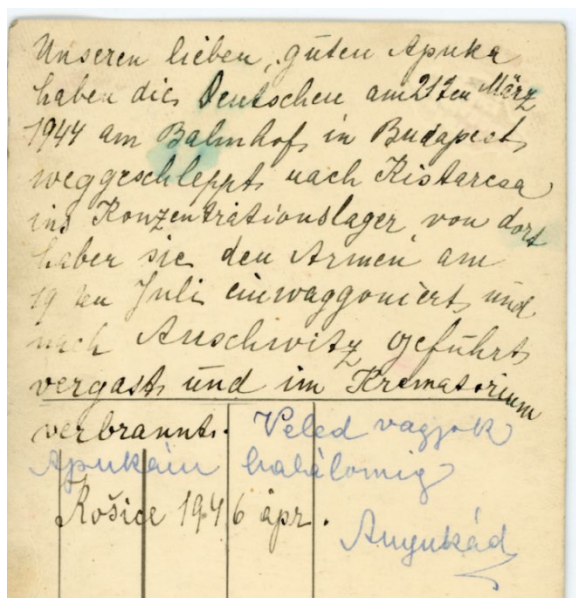 Unseren lieben, guten Apuka
haben die Deutschen am 21ten März
1944 am Bahnhof in Budapest
weggeschleppt nach Kistarcsa
ins Konzentrationslager von dort
haben sie den Armen am
19 ten Juli einwaggoniert und
nach Auschwitz geführt
vergast und im Krematorium
verbrannt. Veled vagyok
Apukám halálomig
Košice 1946 ápr.
Anyukád